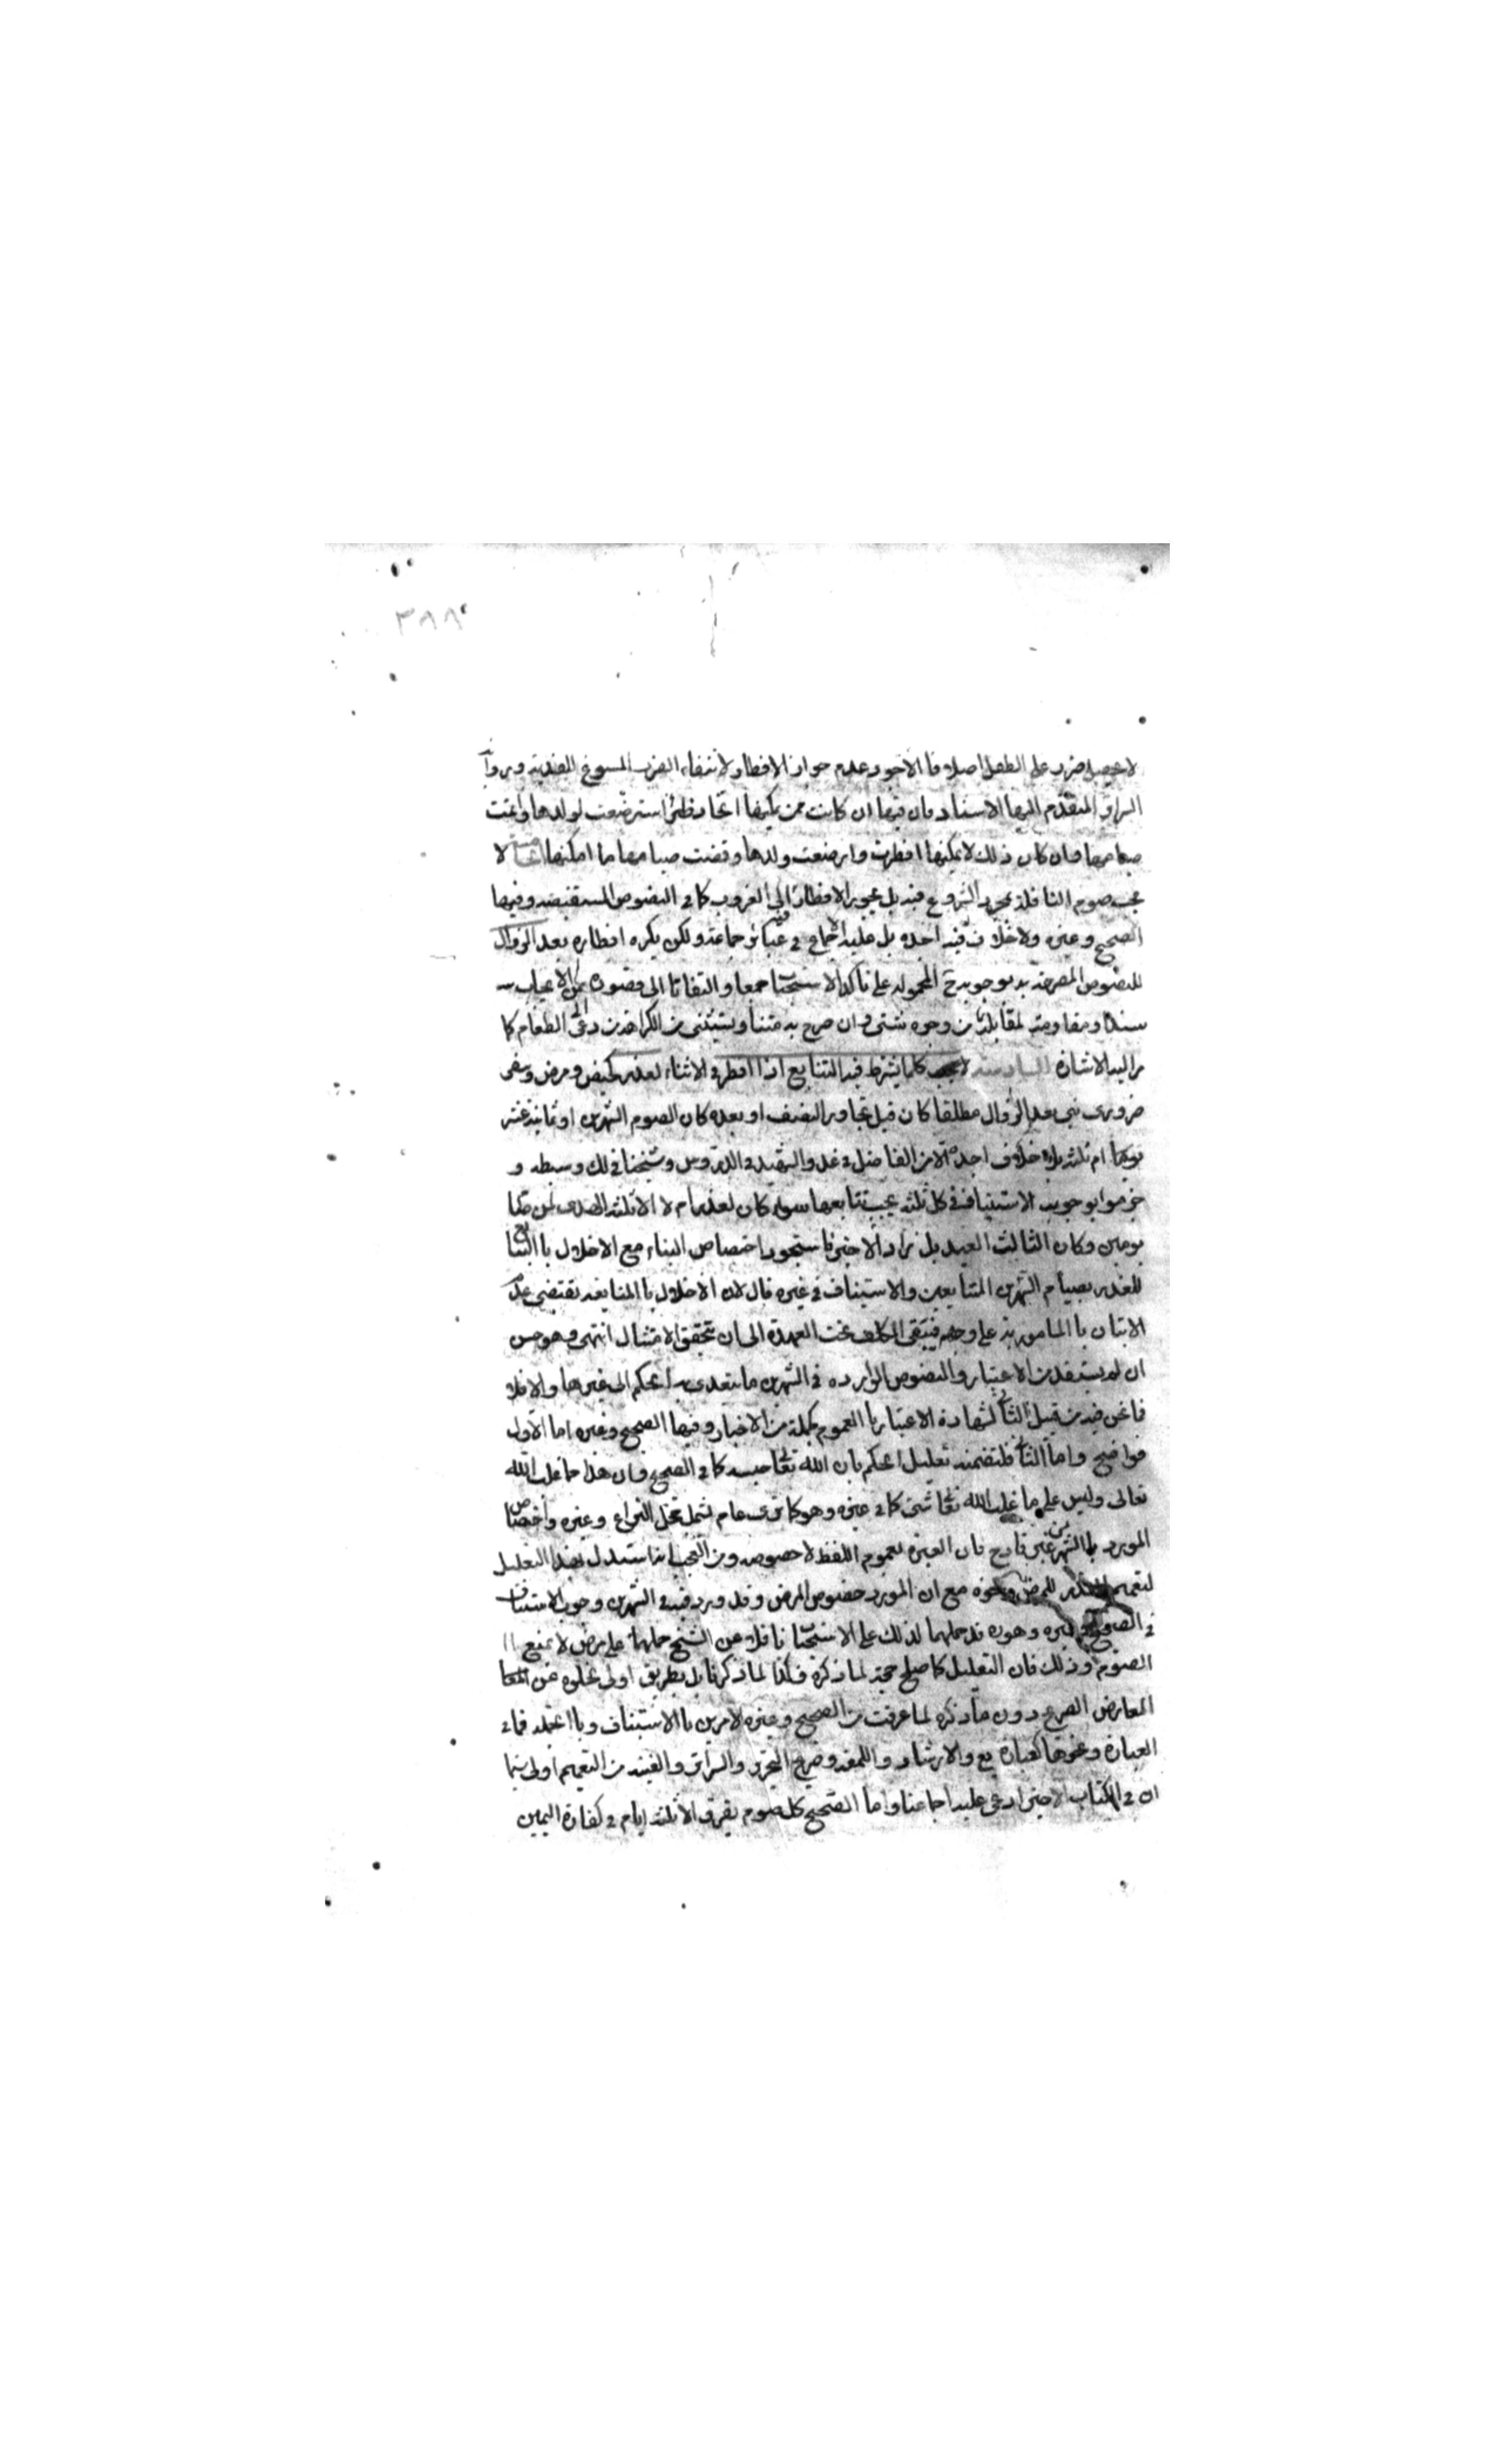 ٣٨٨
لا يحصل ضرب على الطفل اصلا فالاجود عدم جواز الافطار لانتفاء الضرر المسوغ للفدية ورواية
السرائر المتقدم اليها الاسناد فان فيها ان كانت ممن يمكنها اتخاذ ظئر استرضعت لولدها واتمت
صيامها وان كان ذلك لا يمكنها افطرت وارضعت ولدها وقضت صيامها ما امكنها الخامسة لا
يجب صوم النافلة بمجرد الشروع فيه بل يجوز الافطار الى الغروب كما في النصوص المستفيضة وفيها
الصحيح وغيره ولا خلاف فيه اجده بل عليه الاجماع في عبائر جماعة ولكن يكره افطاره بعد الزوال
للنصوص المصرحة بوجوبه ح المحمولة على تأكد الاستحباب جمعا والتفاتا الى قصوره عن الايجاب
سندا ومقاومة لمقابلة من وجوه شتى وان صرح به متنا ويستثنى من الكراهة من دعى الى الطعام كما
مر اليه الاشارة السادسة كلما يشترط فيه التتابع اذا افطر في الاثناء لعذر كحيض ومرض وسفر
ضروري بنى بعد الزوال مطلقا كان قبل تجاوز النصف او بعده كان الصوم الشهرين او ثمانية عشر
يوما ام ثلثة بلا خلاف اجده الا من الفاضل في عد والشهيد في الدروس وشيخنا في لك وسبطه و
جزموا بوجوب الاستيناف في كل ثلثة يجب تتابعها سواء كان لعذر ام لا الا ثلثة الهدى لمن صام
يومين وكان الثالث العيد بل زاد الاخير فاستجود اختصاص البناء مع الاخلال بالتتابع
للعذر بصيام الشهرين المتتابعين والاستيناف في غيره قال لان الاخلال بالمتابعة يقتضى عدم
الاتيان بالمامور به على وجهه فيبقى المكلف تحت العهدة الى ان يتحقق الامتثال انتهى وهو حسن
ان لم يستفد من الاعتبار والنصوص الواردة في الشهرين ما يتعدى به الحكم الى غيرها والا فلا
فما نحن فيه من قبيل الثاني لشهادة الاعتبار بالعموم كجملة من الاخبار وفيها الصحيح وغيره اما الاول
فواضح واما الثاني فلتضمنه تعليل الحكم بان الله تعالى حبسه كما في الصحيح وان هذا مما غلب الله
تعالى وليس على ما غلب الله تعالى شئ كما في غيره وهو كما ترى عام يشمل محل النزاع وغيره واختصاص
المورد بالشهرين غير قادح فان العبرة بعموم اللفظ لا خصوصه ومن العجب انه استدل بهذا التعليل
لتعميم العذر للمرض وغيره مع ان المورد خصوص المرض وقد ورد فيه في الشهرين وجوب الاستيناف
في الصحيح وغيره وهو ره قد حملهما لذلك على الاستحباب ناقلا عن الشيخ حملهما على مرض لا يمنع
الصوم وذلك فان التعليل كما صلح حجة لما ذكره فكذا لما ذكرنا بل بطريق اولى لخلوه عن
المعارض الصريح دون ما ذكره لما عرفت من الصحيح وغيره الامرين بالاستيناف وبالجملة فما في
العبارة ونحوها كعبارة يع والارشاد واللمعة وصريح التحرير والسرائر والغنية من التعميم اولى سيما
ان في الكتاب الاخير ادعى عليه اجماعنا واما الصحيح كل صوم يفرق الا ثلثة ايام في كفارة اليمين